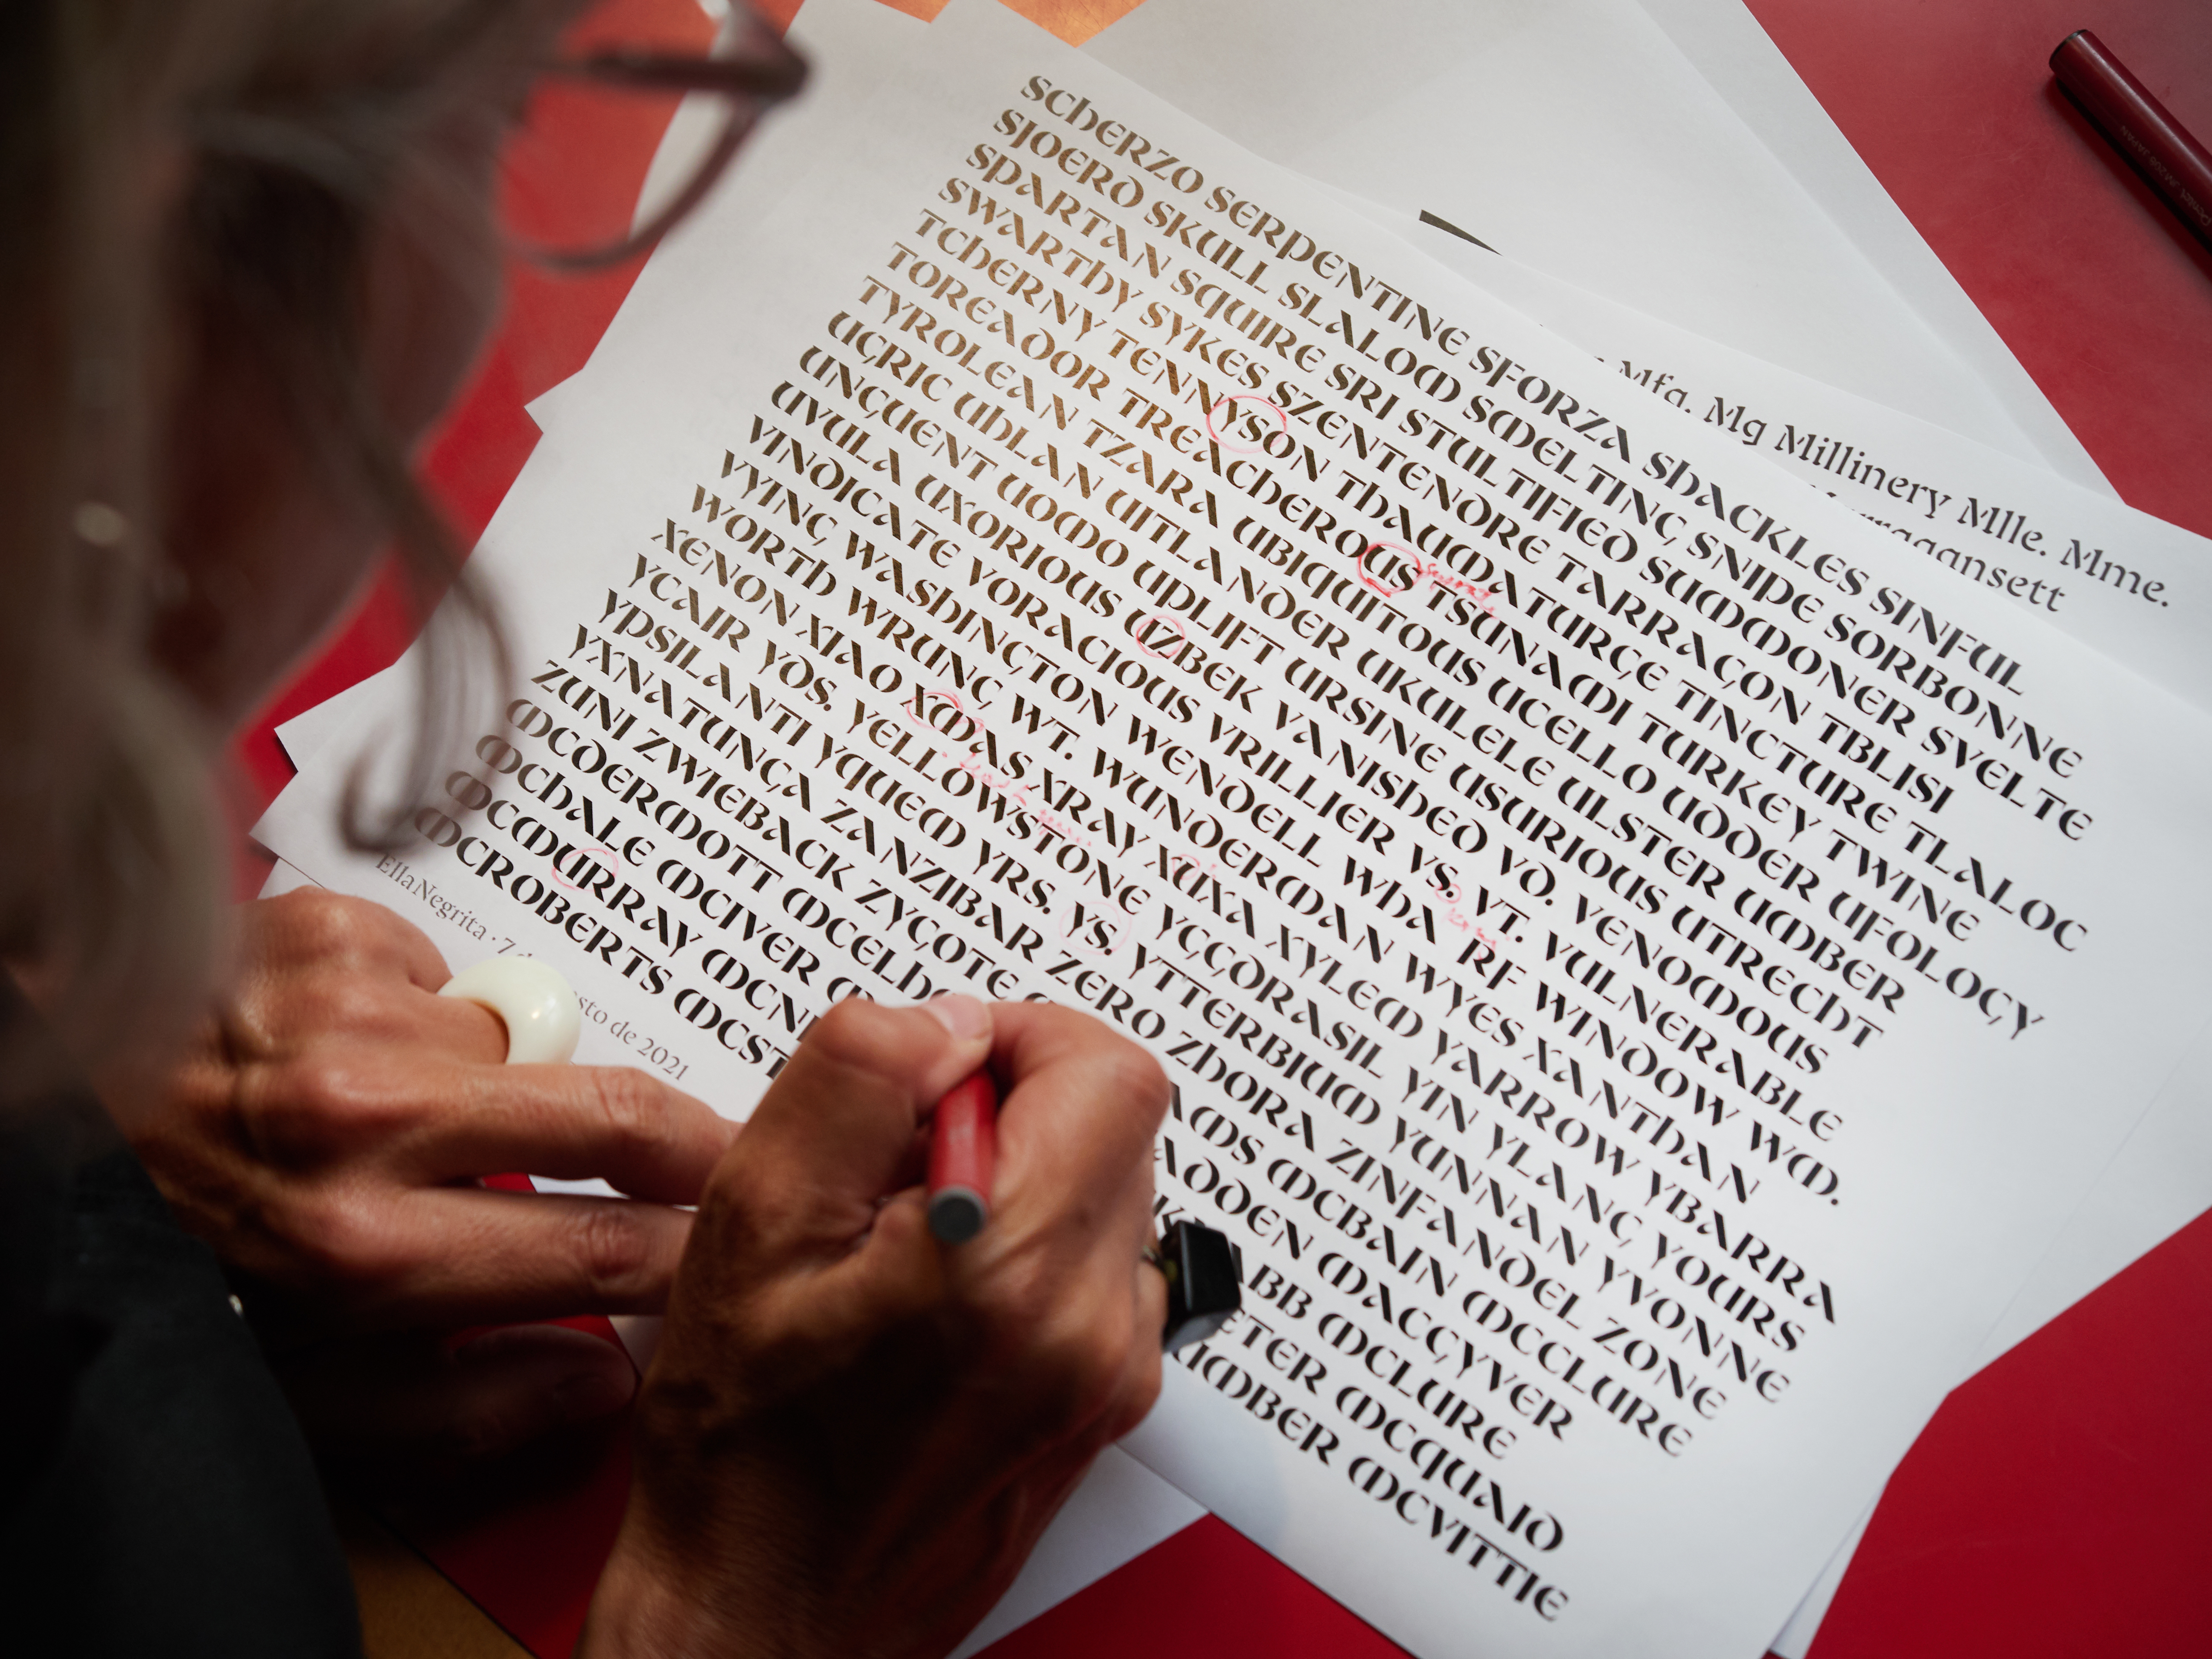 SCHERZO SERPENTINE SFORZA SHACKLES SINFUL
SJOERD SKULL SLALOM SMELTING SNIPE SORBONNE
SPARTAN SQUIRE SRI STULTIFIED SUMMONER SVELTE
SWARTHY SYKES SZENTENDRE TARRAGON TBLISI
TCHERNY TENNYSON THAUMATURGE TINCTURE TLALOC
TOREADOR TREACHEROUS TSUNAMI TURKEY TWINE
TYROLEAN TZARA UBIQUITOUS UCELLO UDDER UFOLOGY
UGRIC UHLAN UITLANDER UKULELE ULSTER UMBER
UNGUENT UOMO UPLIFT URSINE USURIOUS UTRECHT
UVULA UXORIOUS UZBEK VANISHED VD. VENOMOUS
VINDICATE VORACIOUS VRILLIER VS. VT. VULNERABLE
VYING WASHINGTON WENDELL WHA RF WINDOW WM.
WORTH WRUNG WT. WUNDERMAN WYES XANTHAN
XENON XIAO XMAS XRAY XUXA XYLEM YARROW YBARRA
YCAIR YDS. YELLOWSTONE YGGDRASIL YIN YLANG YOURS
YPSILANTI YQUEM YRS. YS. YTTERBIUM YUNNAN YVONNE
YXNATUNGA ZANZIBAR ZERO ZHORA ZINFANDEL ZONE
ZUNI ZWIEBACK ZYGOTE MCBAIN MCCLURE
MCDERMOTT MACGYVER
MCHALE MCIVER MCLURE
MCMURRAY MCQUAID
MCROBERTS MCVITTIE
EllaNegrita · 7 de 2021
Mfg. Mg Millinery Mlle. Mme.